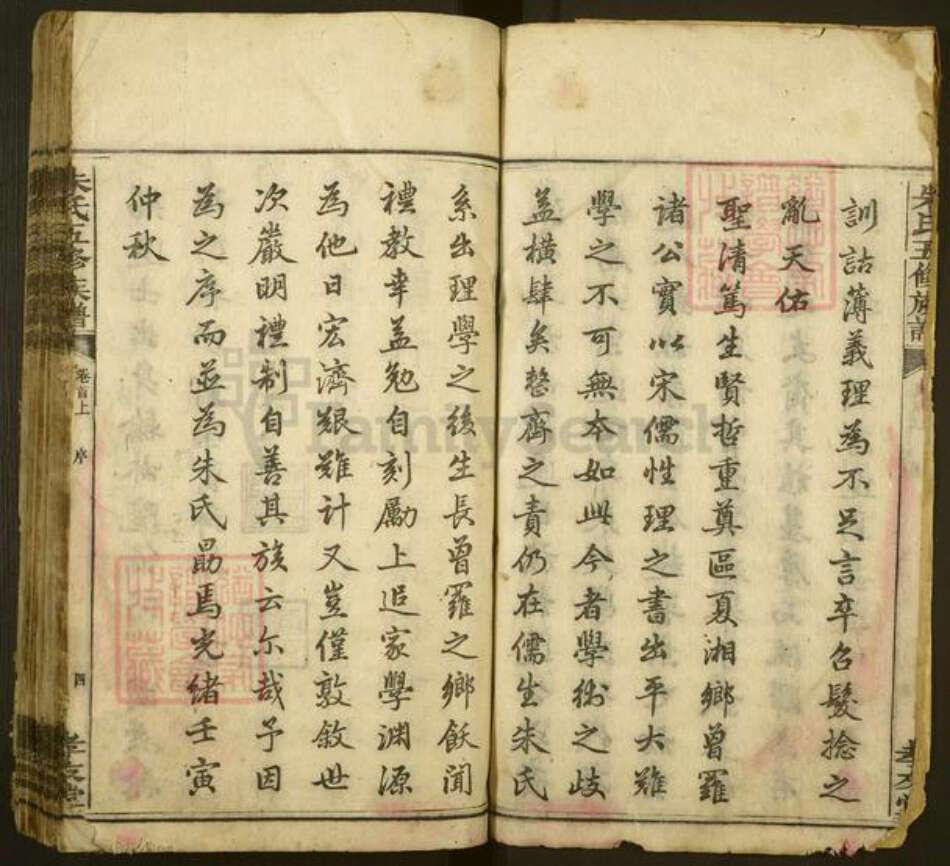 朱氏五修族譜
訓詁薄義理為不足言卒召髮捻之
亂天佑
聖清篤生賢哲重奠區夏湘鄉曾羅
諸公實以宋儒性理之書出平大難
學之不可無本如此今者學術之歧
益橫肆矣整齊之責仍在儒生朱氏
系出理學之後生長曾羅之鄉飫聞
禮教幸益勉自刻勵上追家學淵源
為他日宏濟艱難計又豈僅敦敘世
次嚴明禮制自善其族云尒哉予因
為之序而並為朱氏勗焉光緒壬寅
仲秋
朱氏五修族譜
卷首上
序
四
孝友堂
FamilySearch